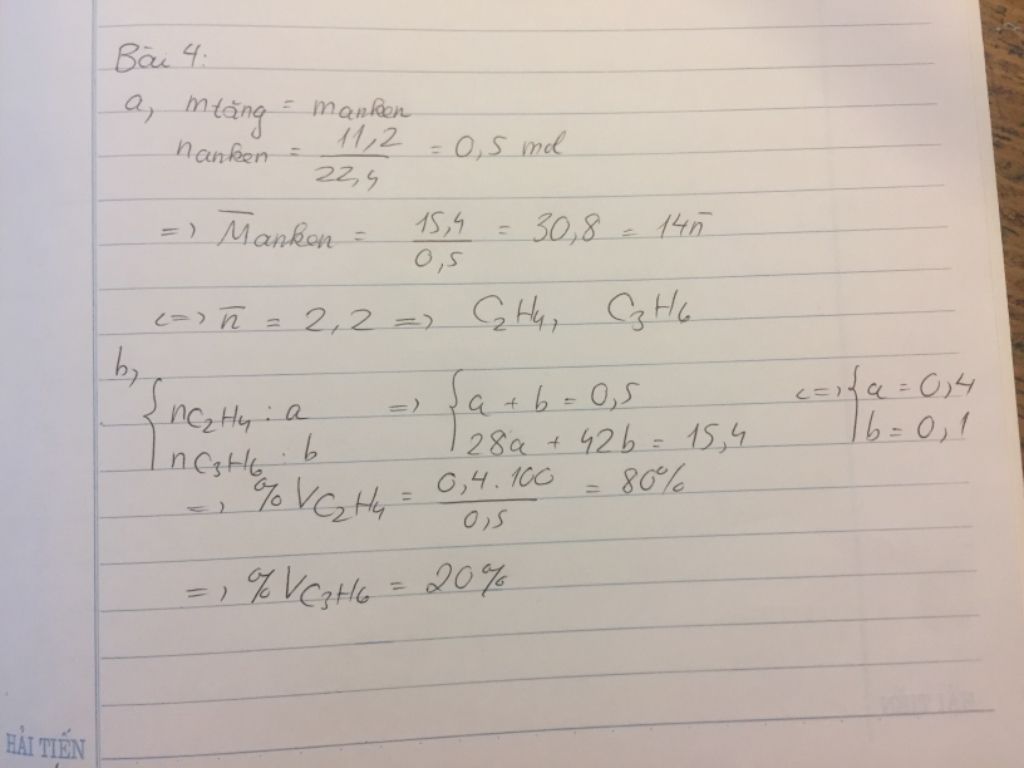 Bài 4:
a, mtăng = manken
nanken = 11,2 / 22,4 = 0,5 mol
=> M̅anken = 15,4 / 0,5 = 30,8 = 14n̅
<=> n̅ = 2,2 => C2H4, C3H6
b,
{ nC2H4 : a => { a + b = 0,5 <=> { a = 0,4
nC3H6 : b 28a + 42b = 15,4 b = 0,1
=> %VC2H4 = 0,4.100 / 0,5 = 80%
=> %VC3H6 = 20%
HẢI TIẾN
HẢI TIẾN